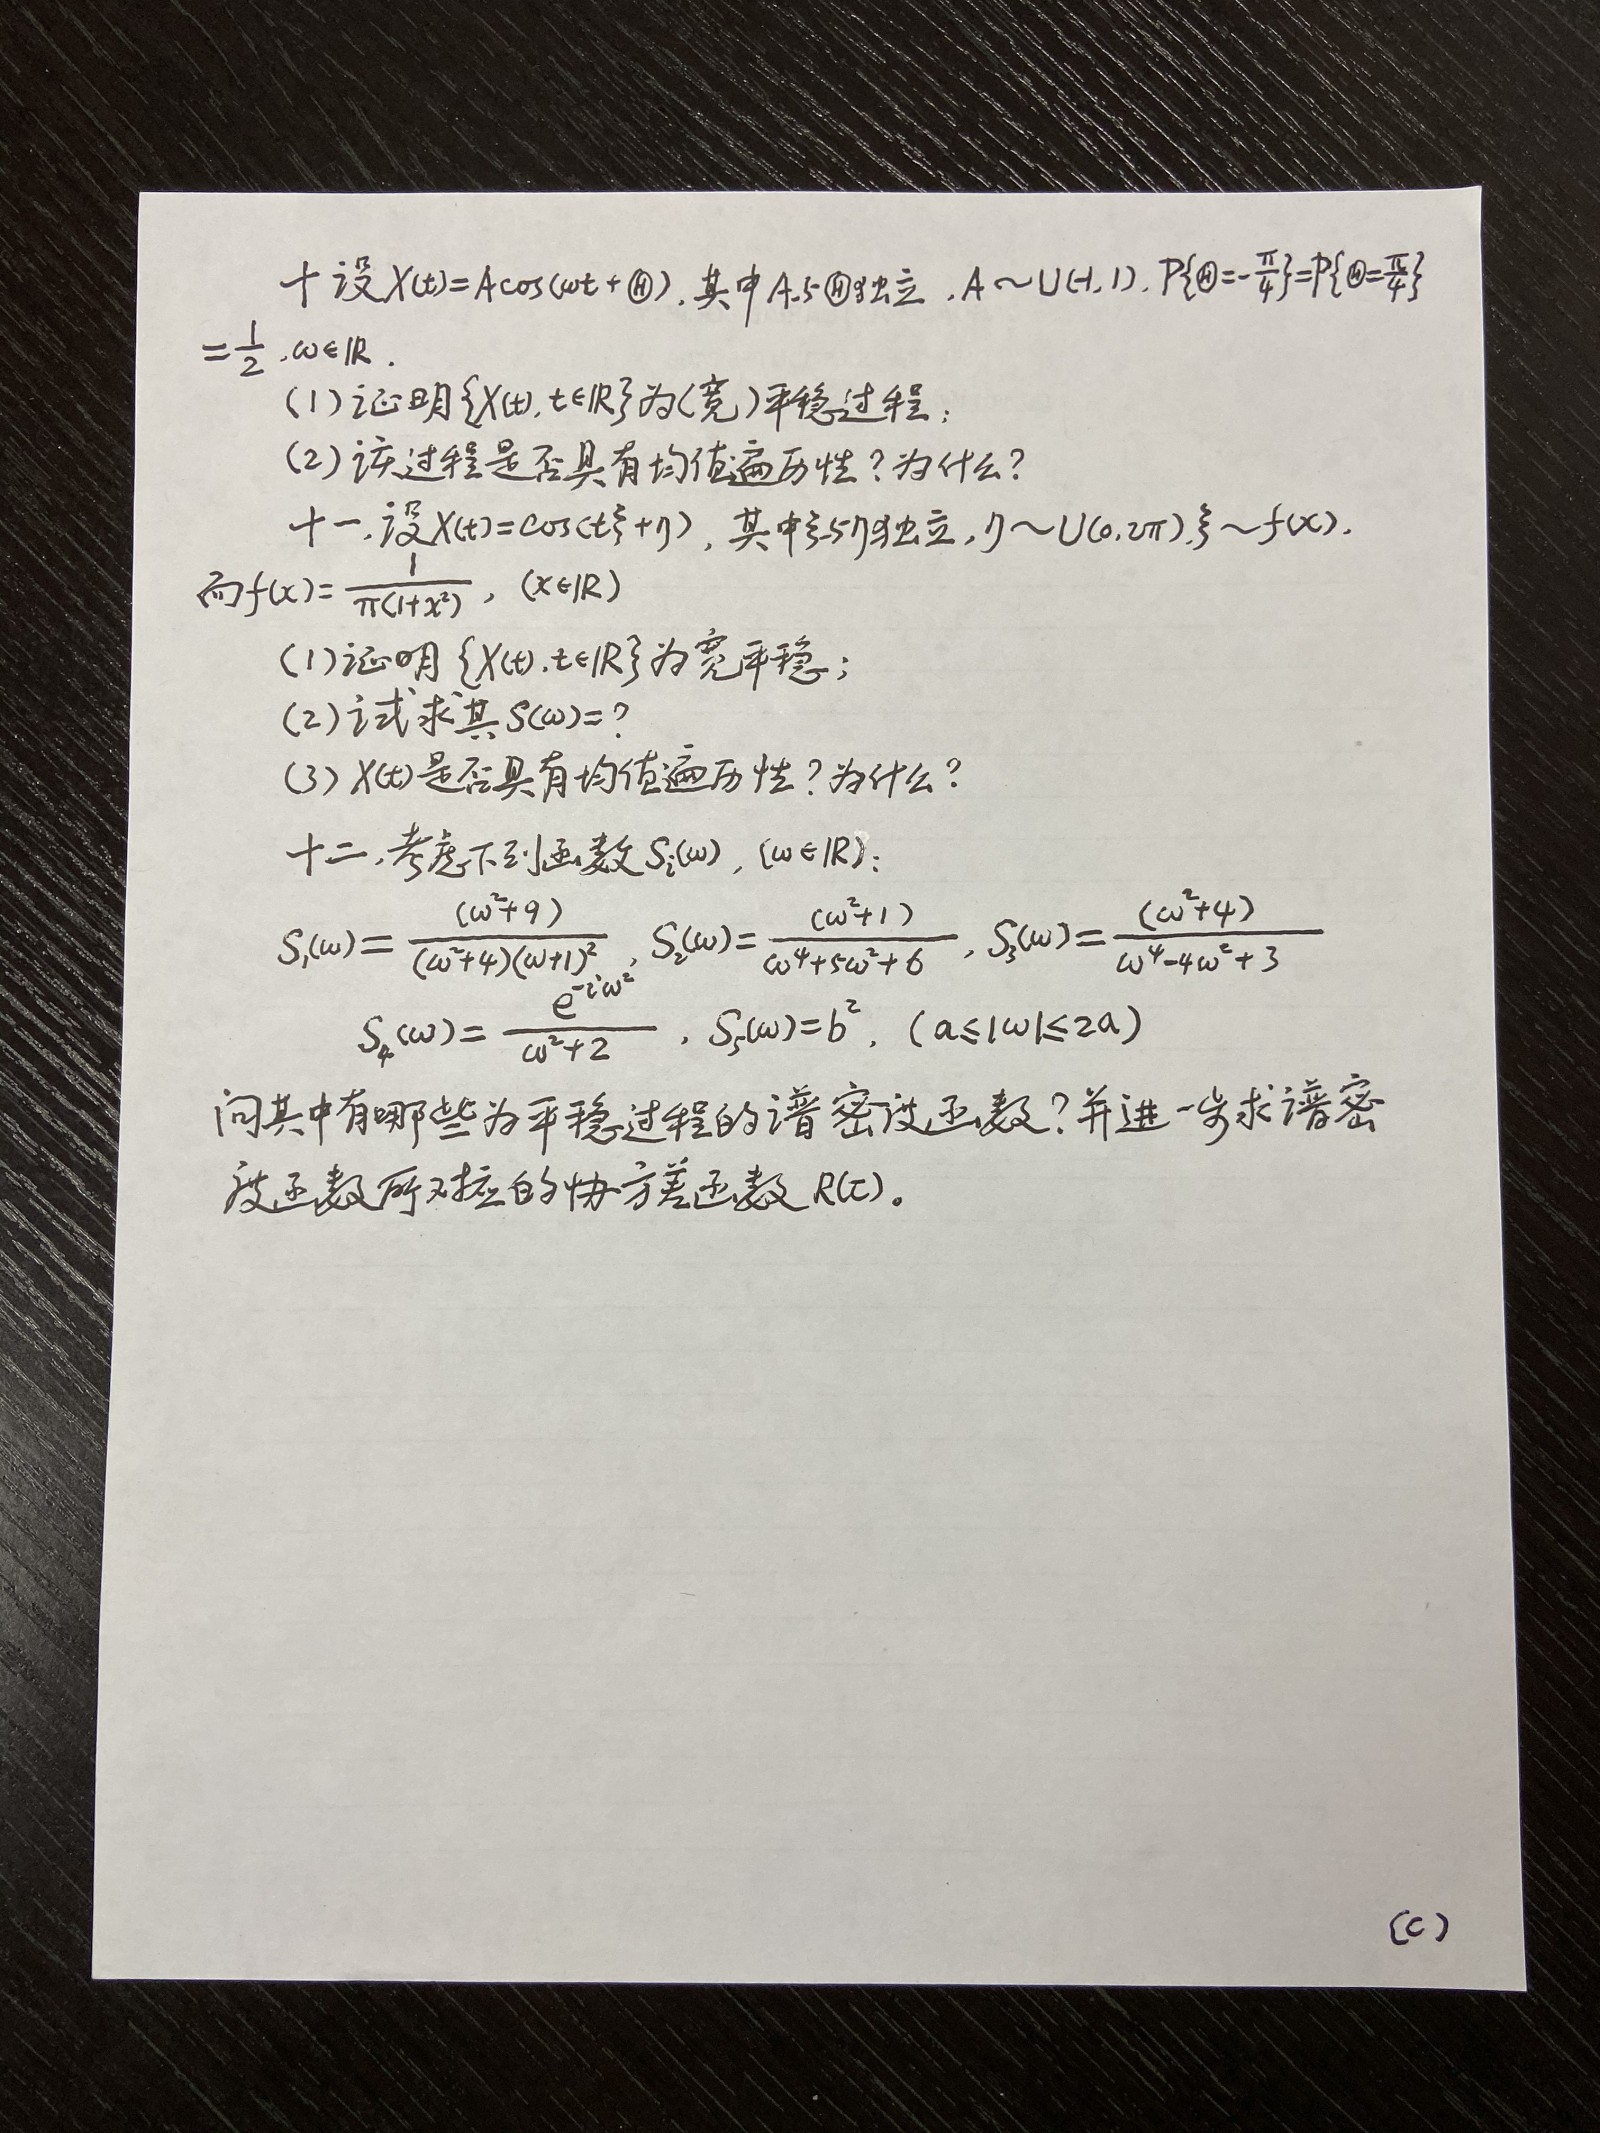 十 设X(t)=Acos(ωt+Ⓗ),其中A与Ⓗ独立,A~U(-1,1),P{Ⓗ=-π/4}=P{Ⓗ=π/4}
=1/2,ω∈R.
(1)证明{X(t),t∈R}为(宽)平稳过程;
(2)该过程是否具有均值遍历性?为什么?
十一,设X(t)=cos(tξ+η),其中ξ与η独立,η~U(0,2π),ξ~f(x).
而f(x)=1/(π(1+x²)),(x∈R)
(1)证明{X(t),t∈R}为宽平稳;
(2)试求其S(ω)=?
(3)X(t)是否具有均值遍历性?为什么?
十二,考虑下列函数Sᵢ(ω),(ω∈R):
S₁(ω)=(ω²+9)/((ω²+4)(ω+1)²),S₂(ω)=(ω²+1)/(ω⁴+5ω²+6),S₃(ω)=(ω²+4)/(ω⁴-4ω²+3)
S₄(ω)=e^(-iω²)/(ω²+2),S₅(ω)=b²,(a≤|ω|≤2a)
问其中有哪些为平稳过程的谱密度函数?并进一步求谱密
度函数所对应的协方差函数R(τ)。
(C)